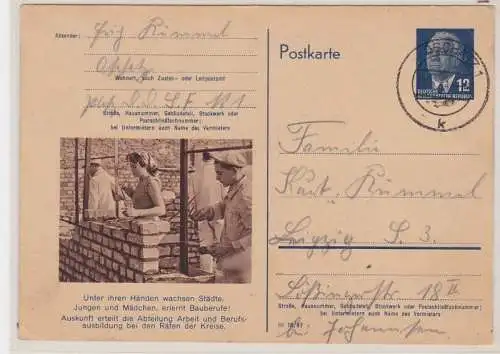 Absender: Kümmel
Wohnort, auch Zustell- oder Leitpostamt
Straße, Hausnummer, Gebäudeteil, Stockwerk oder
Postschließfachnummer;
bei Untermietern auch Name des Vermieters
Unter ihren Händen wachsen Städte.
Jungen und Mädchen, erlernt Bauberufe!
Auskunft erteilt die Abteilung Arbeit und Berufs-
ausbildung bei den Räten der Kreise.
Postkarte
12
k
Familie
Kurt Kümmel
Leipzig S. 3.
18 II
Straße, Hausnummer, Gebäudeteil, Stockwerk oder Postschließfachnummer;
bei Untermietern auch Name des Vermieters
b/ Johannsen